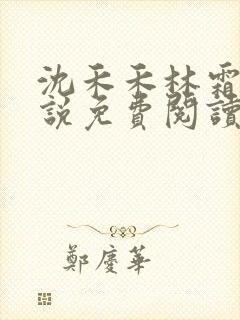 沈禾禾林霜
說免費閱讀
鄭慶華